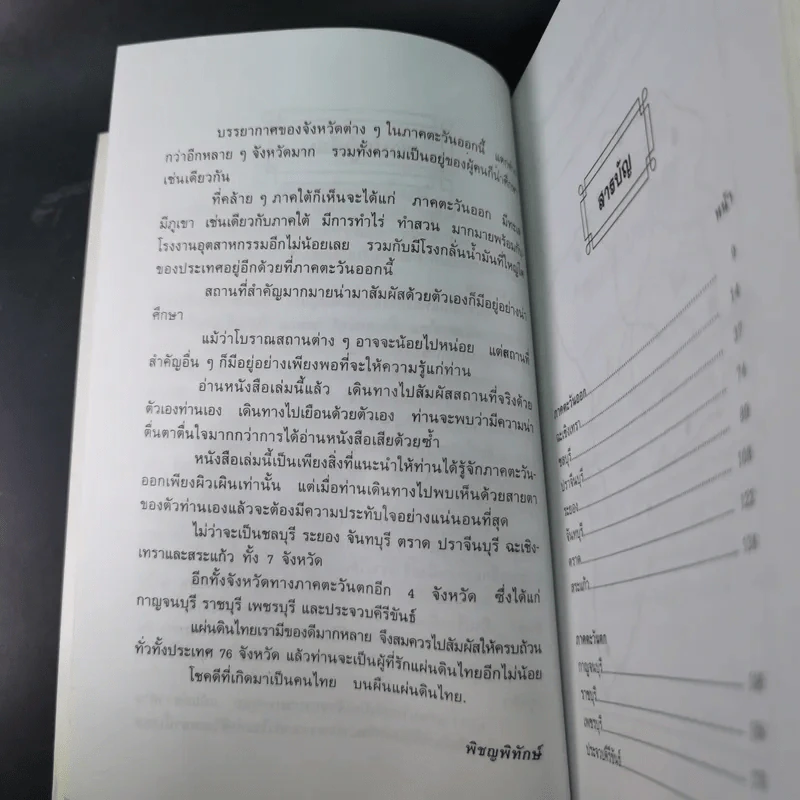 บรรยากาศของจังหวัดต่าง ๆ ในภาคตะวันออกนี้
กว่าอีกหลาย ๆ จังหวัดมาก รวมทั้งความเป็นอยู่ของผู้คนก็น่าศึกษา
เช่นเดียวกัน
ที่คล้าย ๆ ภาคใต้ก็เห็นจะได้แก่ ภาคตะวันออก มีทะเล
มีภูเขา เช่นเดียวกับภาคใต้ มีการทำไร่ ทำสวน มากมายพร้อมกับ
โรงงานอุตสาหกรรมอีกไม่น้อยเลย รวมกับมีโรงกลั่นน้ำมันที่ใหญ่โต
ของประเทศอยู่อีกด้วยที่ภาคตะวันออกนี้
สถานที่สำคัญมากมายน่ามาสัมผัสด้วยตัวเองก็มีอยู่อย่างน่า
ศึกษา
แม้ว่าโบราณสถานต่าง ๆ อาจจะน้อยไปหน่อย แต่สถานที่
สำคัญอื่น ๆ ก็มีอยู่อย่างเพียงพอที่จะให้ความรู้แก่ท่าน
อ่านหนังสือเล่มนี้แล้ว เดินทางไปสัมผัสสถานที่จริงด้วย
ตัวเองท่านเอง เดินทางไปเยือนด้วยตัวเอง ท่านจะพบว่ามีความน่า
ตื่นตาตื่นใจมากกว่าการได้อ่านหนังสือเสียด้วยซ้ำ
หนังสือเล่มนี้เป็นเพียงสิ่งที่แนะนำให้ท่านได้รู้จักภาคตะวัน-
ออกเพียงผิวเผินเท่านั้น แต่เมื่อท่านเดินทางไปพบเห็นด้วยสายตา
ของตัวท่านเองแล้วจะต้องมีความประทับใจอย่างแน่นอนที่สุด
ไม่ว่าจะเป็นชลบุรี ระยอง จันทบุรี ตราด ปราจีนบุรี ฉะเชิง-
เทราและสระแก้ว ทั้ง 7 จังหวัด
อีกทั้งจังหวัดทางภาคตะวันตกอีก 4 จังหวัด ซึ่งได้แก่
กาญจนบุรี ราชบุรี เพชรบุรี และประจวบคีรีขันธ์
แผ่นดินไทยเรามีของดีมากหลาย จึงสมควรไปสัมผัสให้ครบถ้วน
ทั่วทั้งประเทศ 76 จังหวัด แล้วท่านจะเป็นผู้ที่รักแผ่นดินไทยอีกไม่น้อย
โชคดีที่เกิดมาเป็นคนไทย บนผืนแผ่นดินไทย.
พิชญพิทักษ์
สารบัญ
หน้า
ภาคตะวันออก 9
ฉะเชิงเทรา 14
ชลบุรี 37
ปราจีนบุรี 74
ระยอง
จันทบุรี 108
ตราด 122
สระแก้ว
ภาคตะวันตก
กาญจนบุรี
ราชบุรี
เพชรบุรี
ประจวบคีรีขันธ์